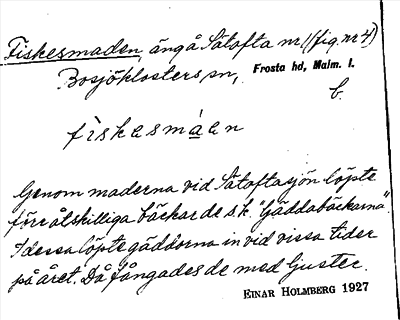 Fiskesmaden, äng å Såtofta nr 1 (fig. nr 4)
Bosjöklosters sn, Frosta hd, Malm. l.
b.
fiskesmáen
Genom maderna vid Såtoftasjön löpte
förr åtskilliga bäckar de s.k. "Gäddabäckarna".
I dessa löpte gäddorna in vid vissa tider
på året. Då fångades de med ljuster.
EINAR HOLMBERG 1927